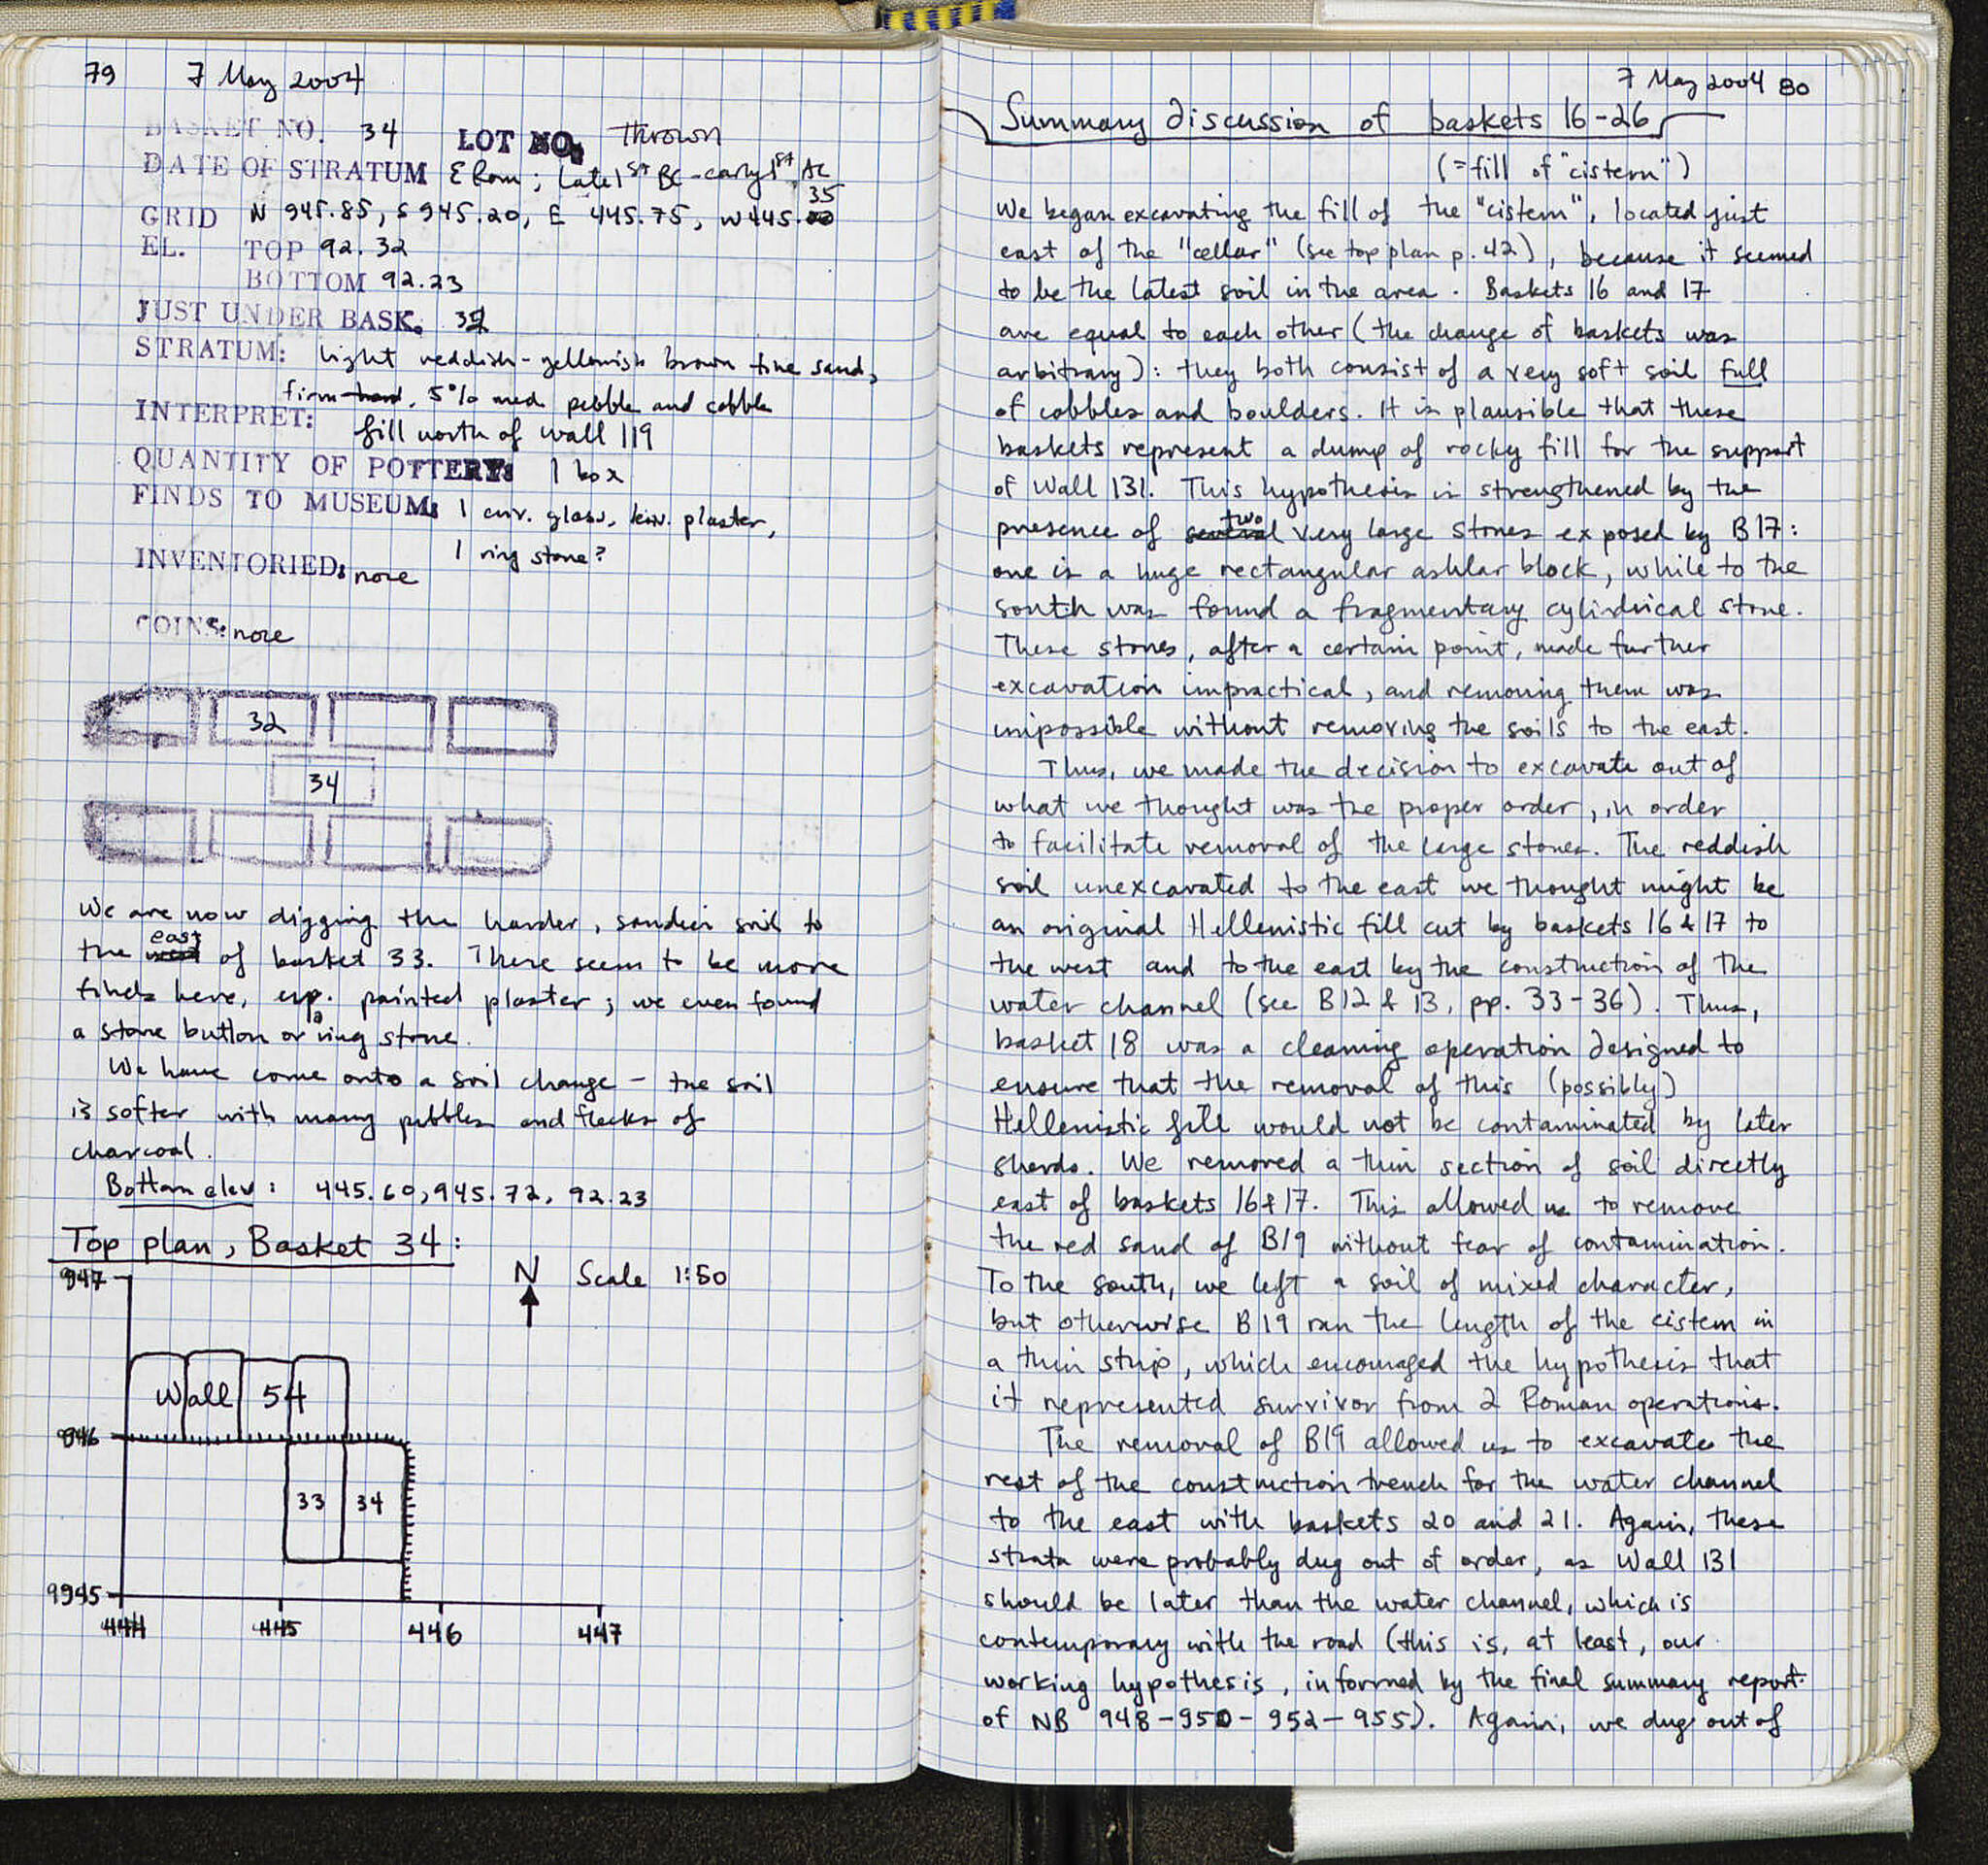 79 7 May 2004
BASKET NO. 34 LOT NO. Thrown
DATE OF STRATUM E Rom; late 1st BC - early 1st AC
GRID N 945.85, S 945.20, E 445.75, W 445.35
EL. TOP 92.32
BOTTOM 92.23
JUST UNDER BASK. 32
STRATUM: light reddish-yellowish brown fine sand,
firm-hard, 5% med pebble and cobble
INTERPRET: fill north of wall 119
QUANTITY OF POTTERY: 1 box
FINDS TO MUSEUM: 1 cur. glass, plaster,
1 ring stone?
INVENTORIED: none
COINS: none
32
34
We are now digging the harder, sandier soil to
the east of basket 33. There seem to be more
finds here, esp. painted plaster; we even found
a stone button or a ring stone.
We have come onto a soil change - the soil
is softer with many pebbles and flecks of
charcoal.
Bottom elev: 445.60, 945.72, 92.23
Top plan, Basket 34:
N Scale 1:50
947
Wall 54
946
33 34
9945
444 445 446 447
7 May 2004 80
Summary discussion of baskets 16-26
(=fill of "cistern")
We began excavating the fill of the "cistern", located just
east of the "cellar" (see top plan p. 42), because it seemed
to be the latest soil in the area. Baskets 16 and 17
are equal to each other (the change of baskets was
arbitrary): they both consist of a very soft soil full
of cobbles and boulders. It is plausible that these
baskets represent a dump of rocky fill for the support
of Wall 131. This hypothesis is strengthened by the
presence of several two very large stones exposed by B17:
one is a huge rectangular ashlar block, while to the
south was found a fragmentary cylindrical stone.
These stones, after a certain point, made further
excavation impractical, and removing them was
impossible without removing the soils to the east.
Thus, we made the decision to excavate out of
what we thought was the proper order, in order
to facilitate removal of the large stones. The reddish
soil unexcavated to the east we thought might be
an original Hellenistic fill cut by baskets 16 & 17 to
the west and to the east by the construction of the
water channel (see B12 & 13, pp. 33-36). Thus,
basket 18 was a cleaning operation designed to
ensure that the removal of this (possibly)
Hellenistic fill would not be contaminated by later
sherds. We removed a thin section of soil directly
east of baskets 16 & 17. This allowed us to remove
the red sand of B19 without fear of contamination.
To the south, we left a soil of mixed character,
but otherwise B19 ran the length of the cistern in
a thin strip, which encouraged the hypothesis that
it represented survivor from 2 Roman operations.
The removal of B19 allowed us to excavate the
rest of the construction trench for the water channel
to the east with baskets 20 and 21. Again, these
strata were probably dug out of order, as Wall 131
should be later than the water channel, which is
contemporary with the road (this is, at least, our
working hypothesis, informed by the final summary report
of NB 948-950-952-955). Again, we dug out of